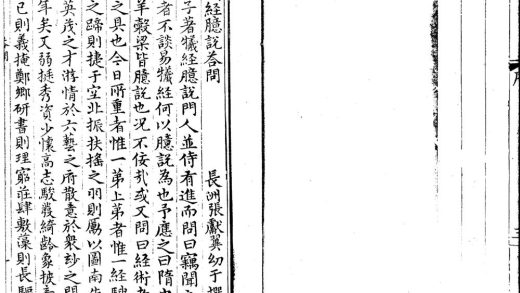 經臆說答問　長洲張獻翼幼于撰
子著犧經臆說門人並侍有進而問曰竊聞
者不談易犧經何以臆說為也予應之曰隋
羊穀梁皆臆說也況不佞哉或又問曰經術
之具也今日所重者惟一第上第者惟一經
之蹄則捷于室北振扶搖之羽則厲以圖南
英茂之才游情於六藝之府散意於衆玅之間
年矣又弱挺秀資少懷高志駿發綺齡象披
已則義掩鄭鄉研書則理窮莊肆敷藻則長驅